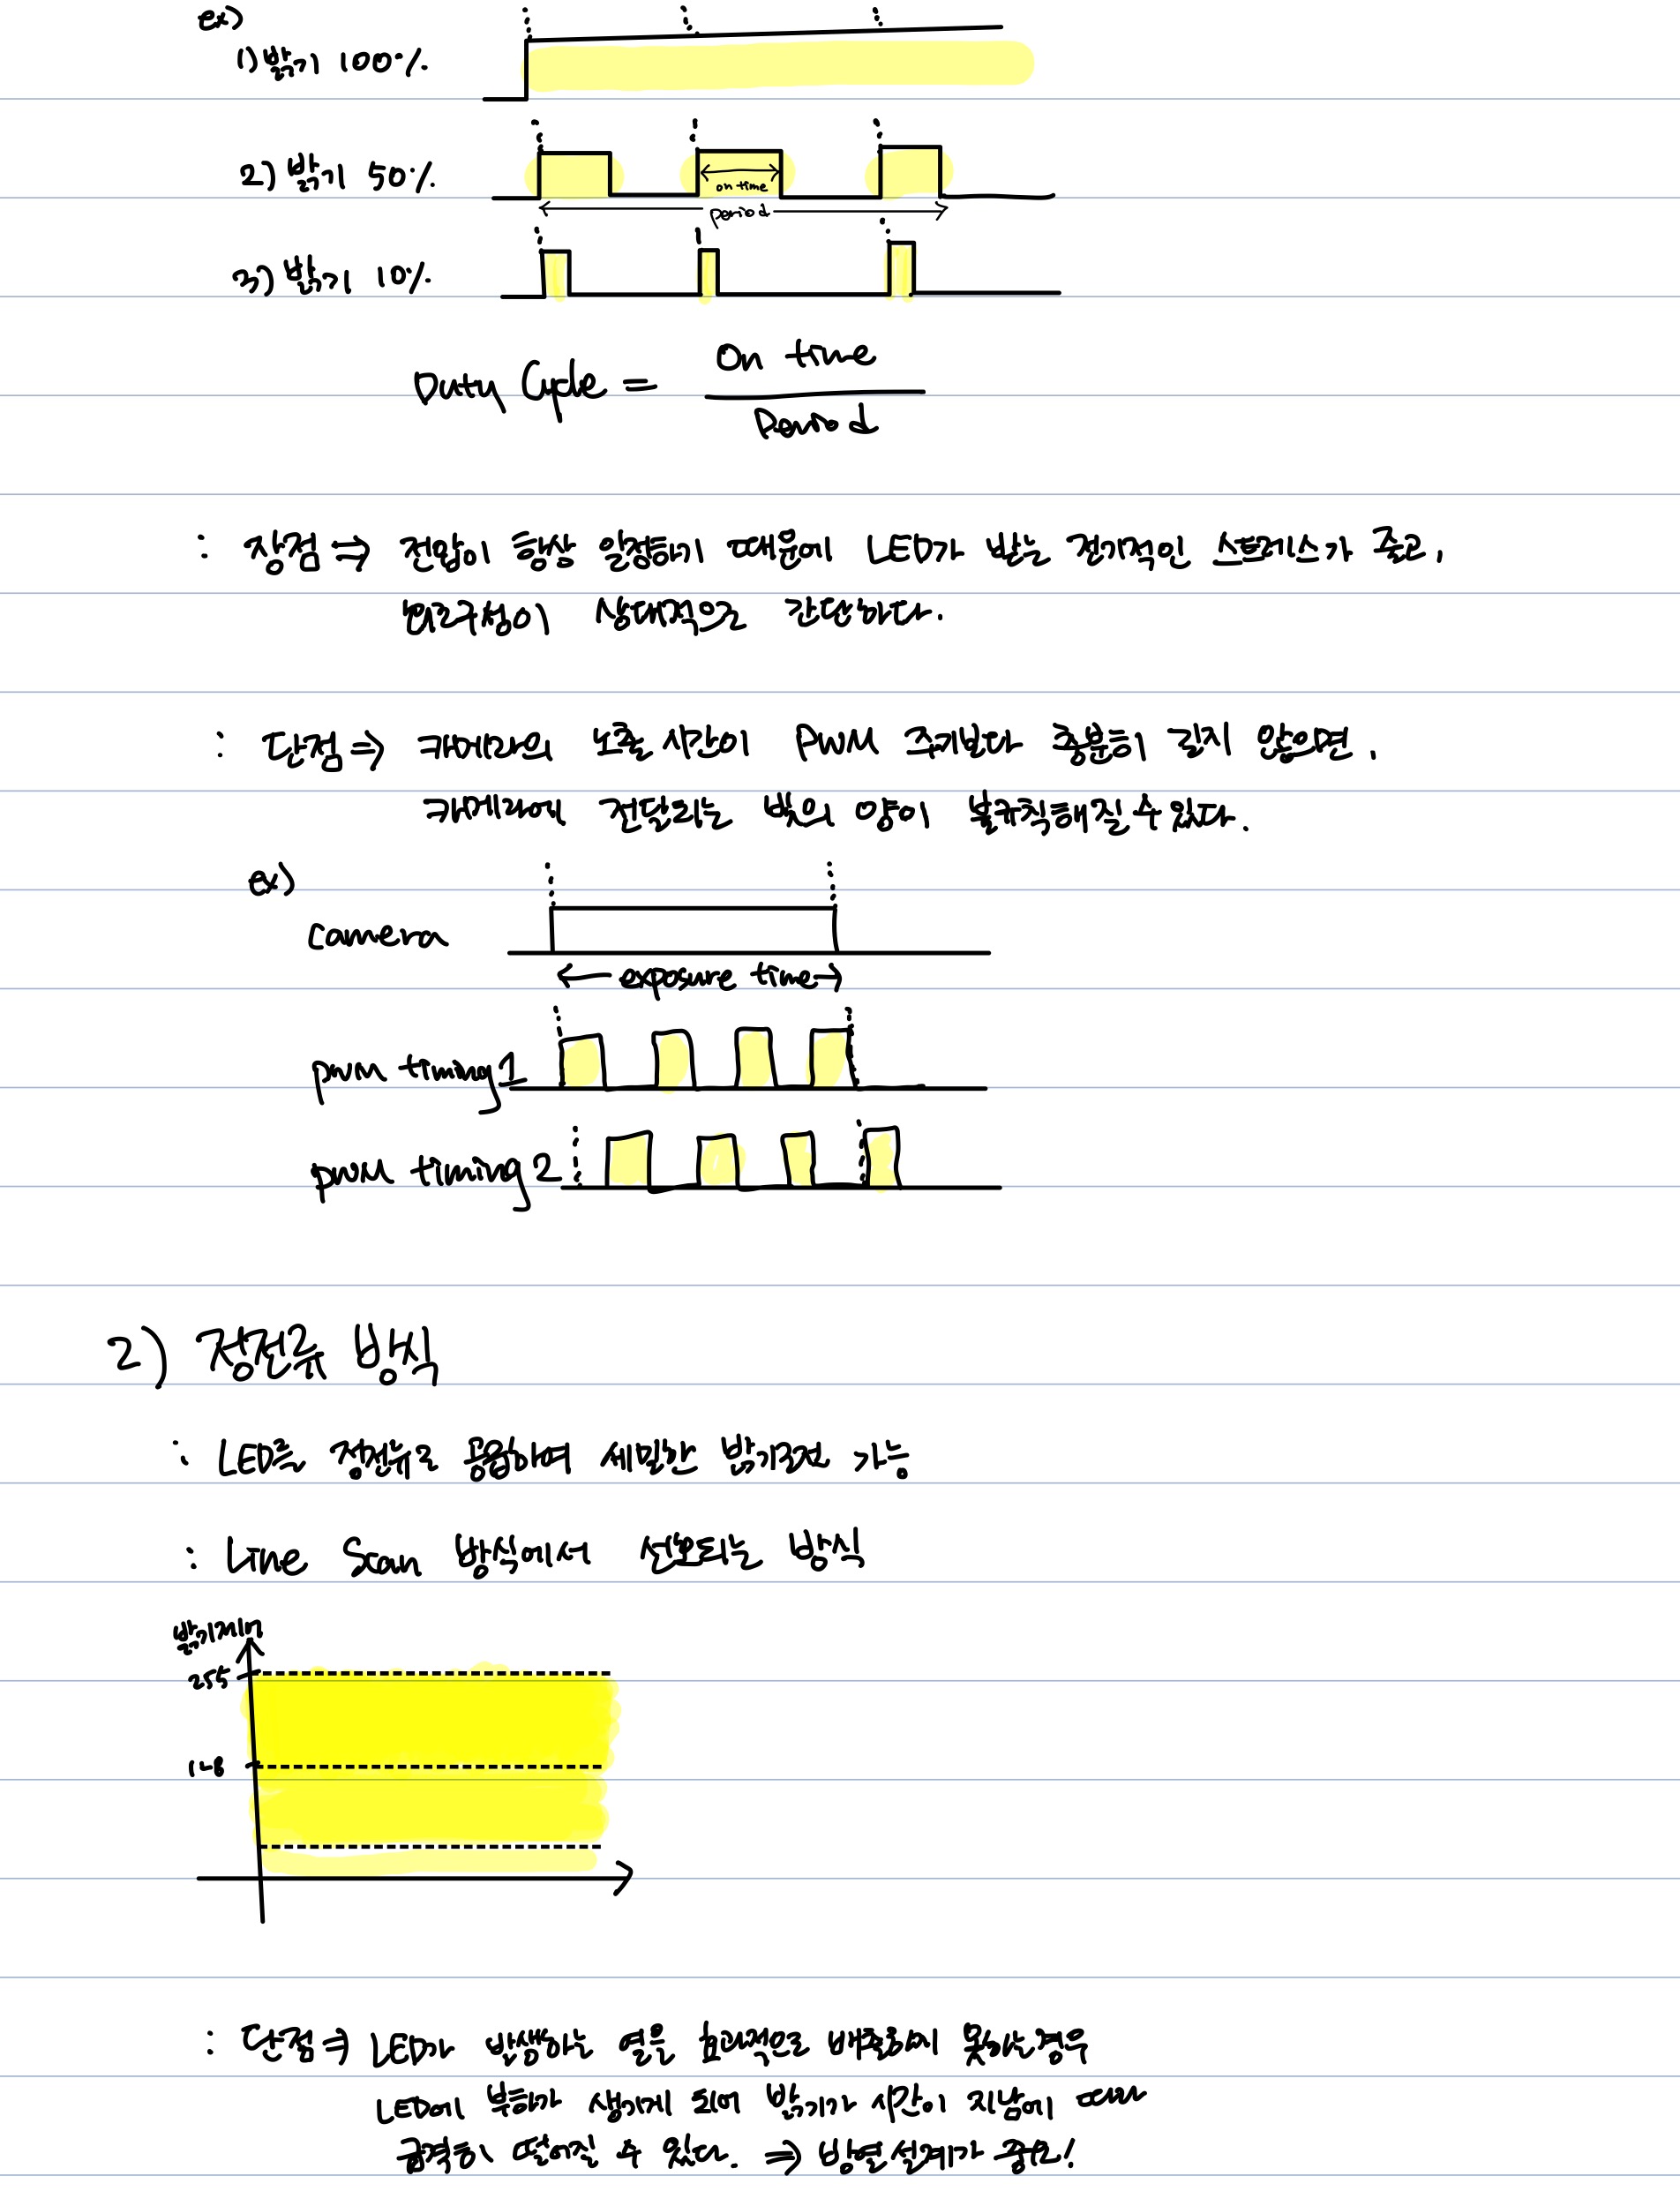 ex)
1) 밝기 100%
2) 밝기 50%
on time
period
3) 밝기 10%
Duty Cycle = On time
Period
: 장점 ⇒ 전압이 항상 일정하기 때문에 LED가 받는 전기적인 스트레스가 적고,
회로구성이 상대적으로 간단하다.
: 단점 ⇒ 카메라의 노출 시간이 PWM 주기보다 충분히 길지 않으면,
카메라에 전달되는 빛의 양이 불규칙해질 수 있다.
ex)
camera
← exposure time →
pwm timing 1
pwm timing 2
2) 정전류 방식
: LED를 정전류로 공급하여 세밀한 밝기조절 가능
: Line Scan 방식에서 선호되는 방식
밝기제어
255
128
: 단점 ⇒ LED가 발생하는 열을 효과적으로 배출하지 못하는경우
LED에 부하가 생기게 되어 밝기가 시간이 지남에 따라
급격히 떨어질 수 있다. ⇒ 방열설계가 중요!